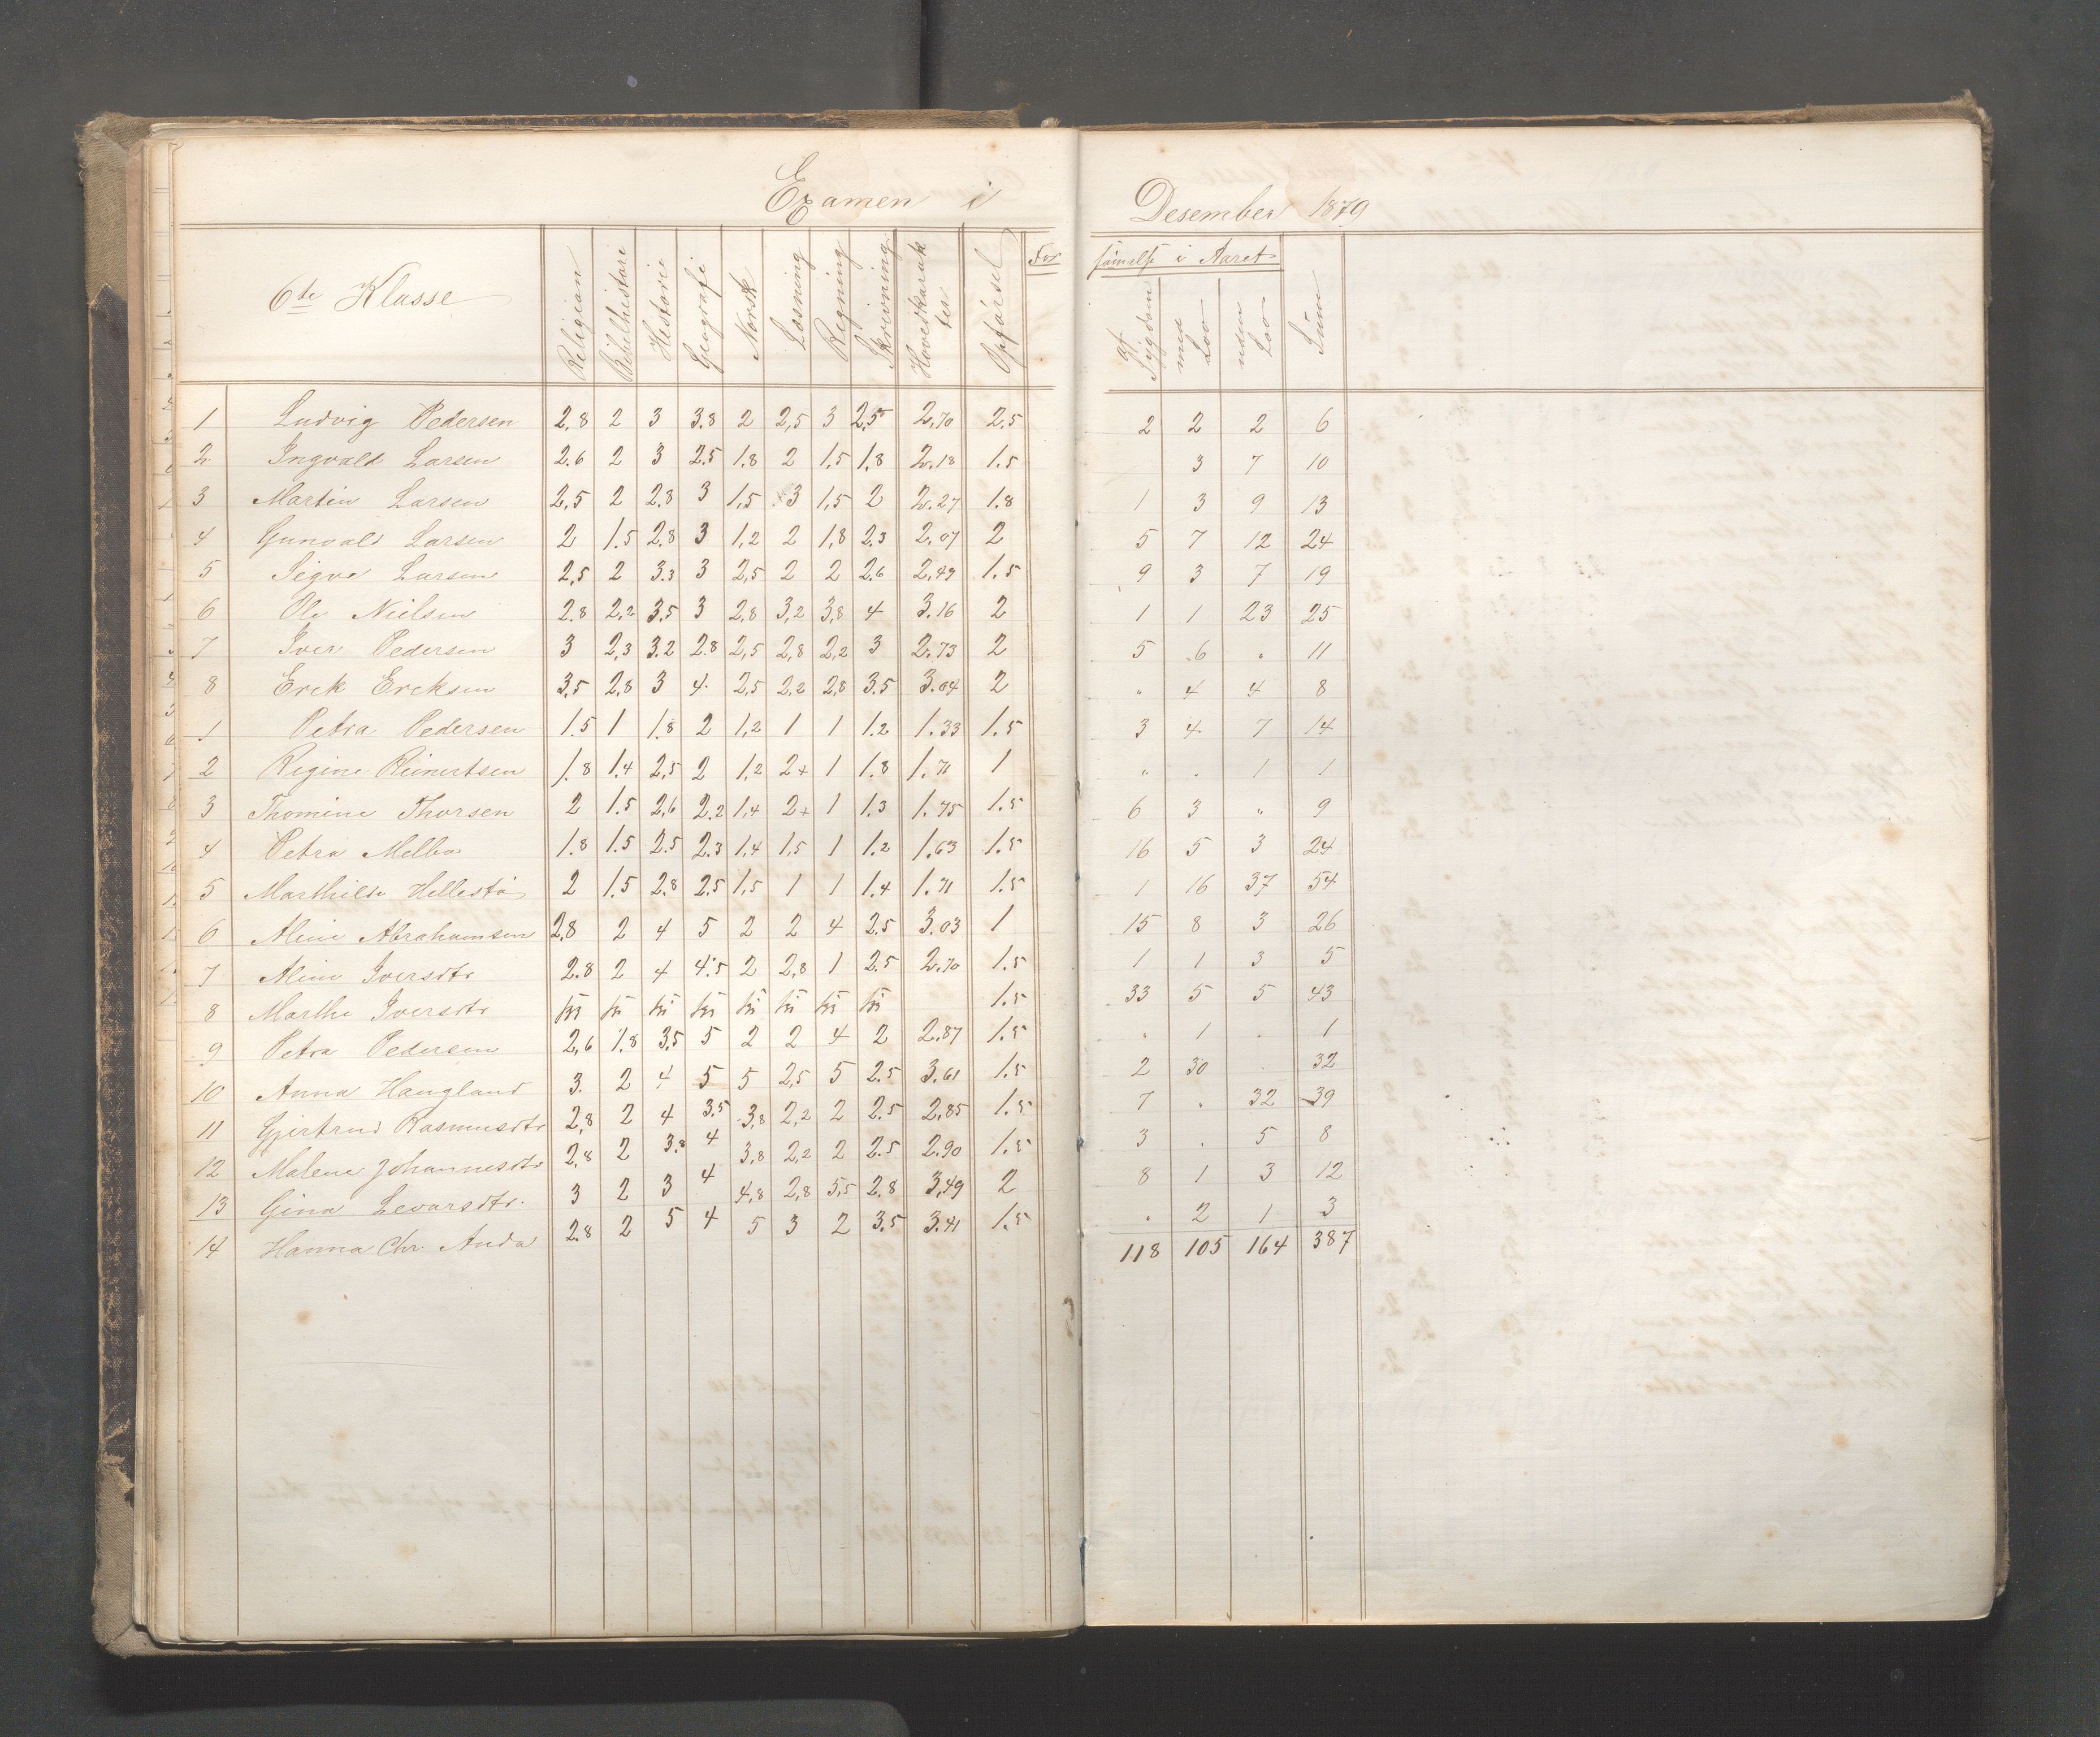 Examen i Desember 1879
6te Klasse Religion Bibelhistorie Historie Geografi Norsk Læsning Regning Skrivning Hovedkarakter Opførsel Forsømelse i Aaret af Sygdom med Lov uden Lov Sum
1 Ludvig Pedersen 2,8 2 3 3.8 2 2,5 3 2,5 2,70 2,5 2 2 2 6
2 Ingvald Larsen 2.6 2 3 2.5 1,8 2 1,5 1,8 2,18 1.5 3 7 10
3 Martin Larsen 2,5 2 2.8 3 1,5 3 1,5 2 2.27 1.8 1 3 9 13
4 Gunvald Larsen 2 1.5 2,8 3 1,2 2 1,8 2.3 2.07 2 5 7 12 24
5 Sigve Larsen 2,5 2 3.3 3 2,5 2 2 2.6 2,49 1.5 9 3 7 19
6 Ole Nielsen 2.8 2,2 3,5 3 2,8 3,2 3,8 4 3.16 2 1 1 23 25
7 Iver Pedersen 3 2,3 3.2 2.8 2,5 2,8 2,2 3 2.73 2 5 6 . 11
8 Erek Ereksen 3,5 2,8 3 4. 2,5 2,2 2,8 3.5 3.04 2 " 4 4 8
1 Petra Pedersen 1.5 1 1.8 2 1,2 1 1 1.2 1.33 1.5 3 4 7 14
2 Regine Reinertsen 1.8 1.4 2,5 2 1,2 2+ 1 1.8 1.71 1 " . 1 1
3 Thomine Thorsen 2 1.5 2,6 2.2 1,4 2+ 1 1.3 1.75 1.5 6 3 " 9
4 Petra Melbo 1.8 1.5 2.5 2.3 1,4 1,5 1 1.2 1.63 1.5 16 5 3 24
5 Marthilde Hellestø 2 1.5 2.8 2.5 1,5 1 1 1.4 1.71 1.5 1 16 37 54
6 Aline Abrahamsen 2,8 2 4 5 2 2 4 2.5 3.03 1 15 8 3 26
7 Aline Iversdtr 2.8 2 4 4.5 2 2,8 1 2.5 2.70 1.5 1 1 3 5
8 Marthe Iversdtr 1.5 33 5 5 43
9 Petra Pedersen 2,6 1.8 3,5 5 2 2 4 2 2.87 1.5 " 1 . 1
10 Anna Haugland 3. 2 4 5 5 2,5 5 2.5 3.61 1.5 2 30 . 32
11 Gjertrud Rasmusdtr 2,8 2 4 3.5 3,8 2,2 2 2.5 2,85 1.5 7 . 32 39
12 Malene Johannesdtr 2,8 2 3.8 4 3,8 2,2 2 2.5 2.90 1.5 3 . 5 8
13 Gina Sevarsdtr. 3 2 3 4 4,8 2,8 5,5 2.8 3,49 2 8 1 3 12
14 Hanna Chr. Anda 2.8 2 5 4 5 3 2 3.5 3.41 1.5 . 2 1 3
118 105 164 387